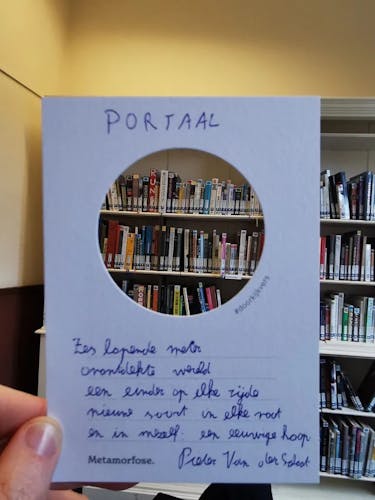 PORTAAL
#doorkijkvers
Zes lopende meter
onontdekte wereld
een einder op elke zijde
nieuwe soort in elke noot
en in mezelf: een eeuwige hoop
Metamorfose. Pieter Van der Schoot